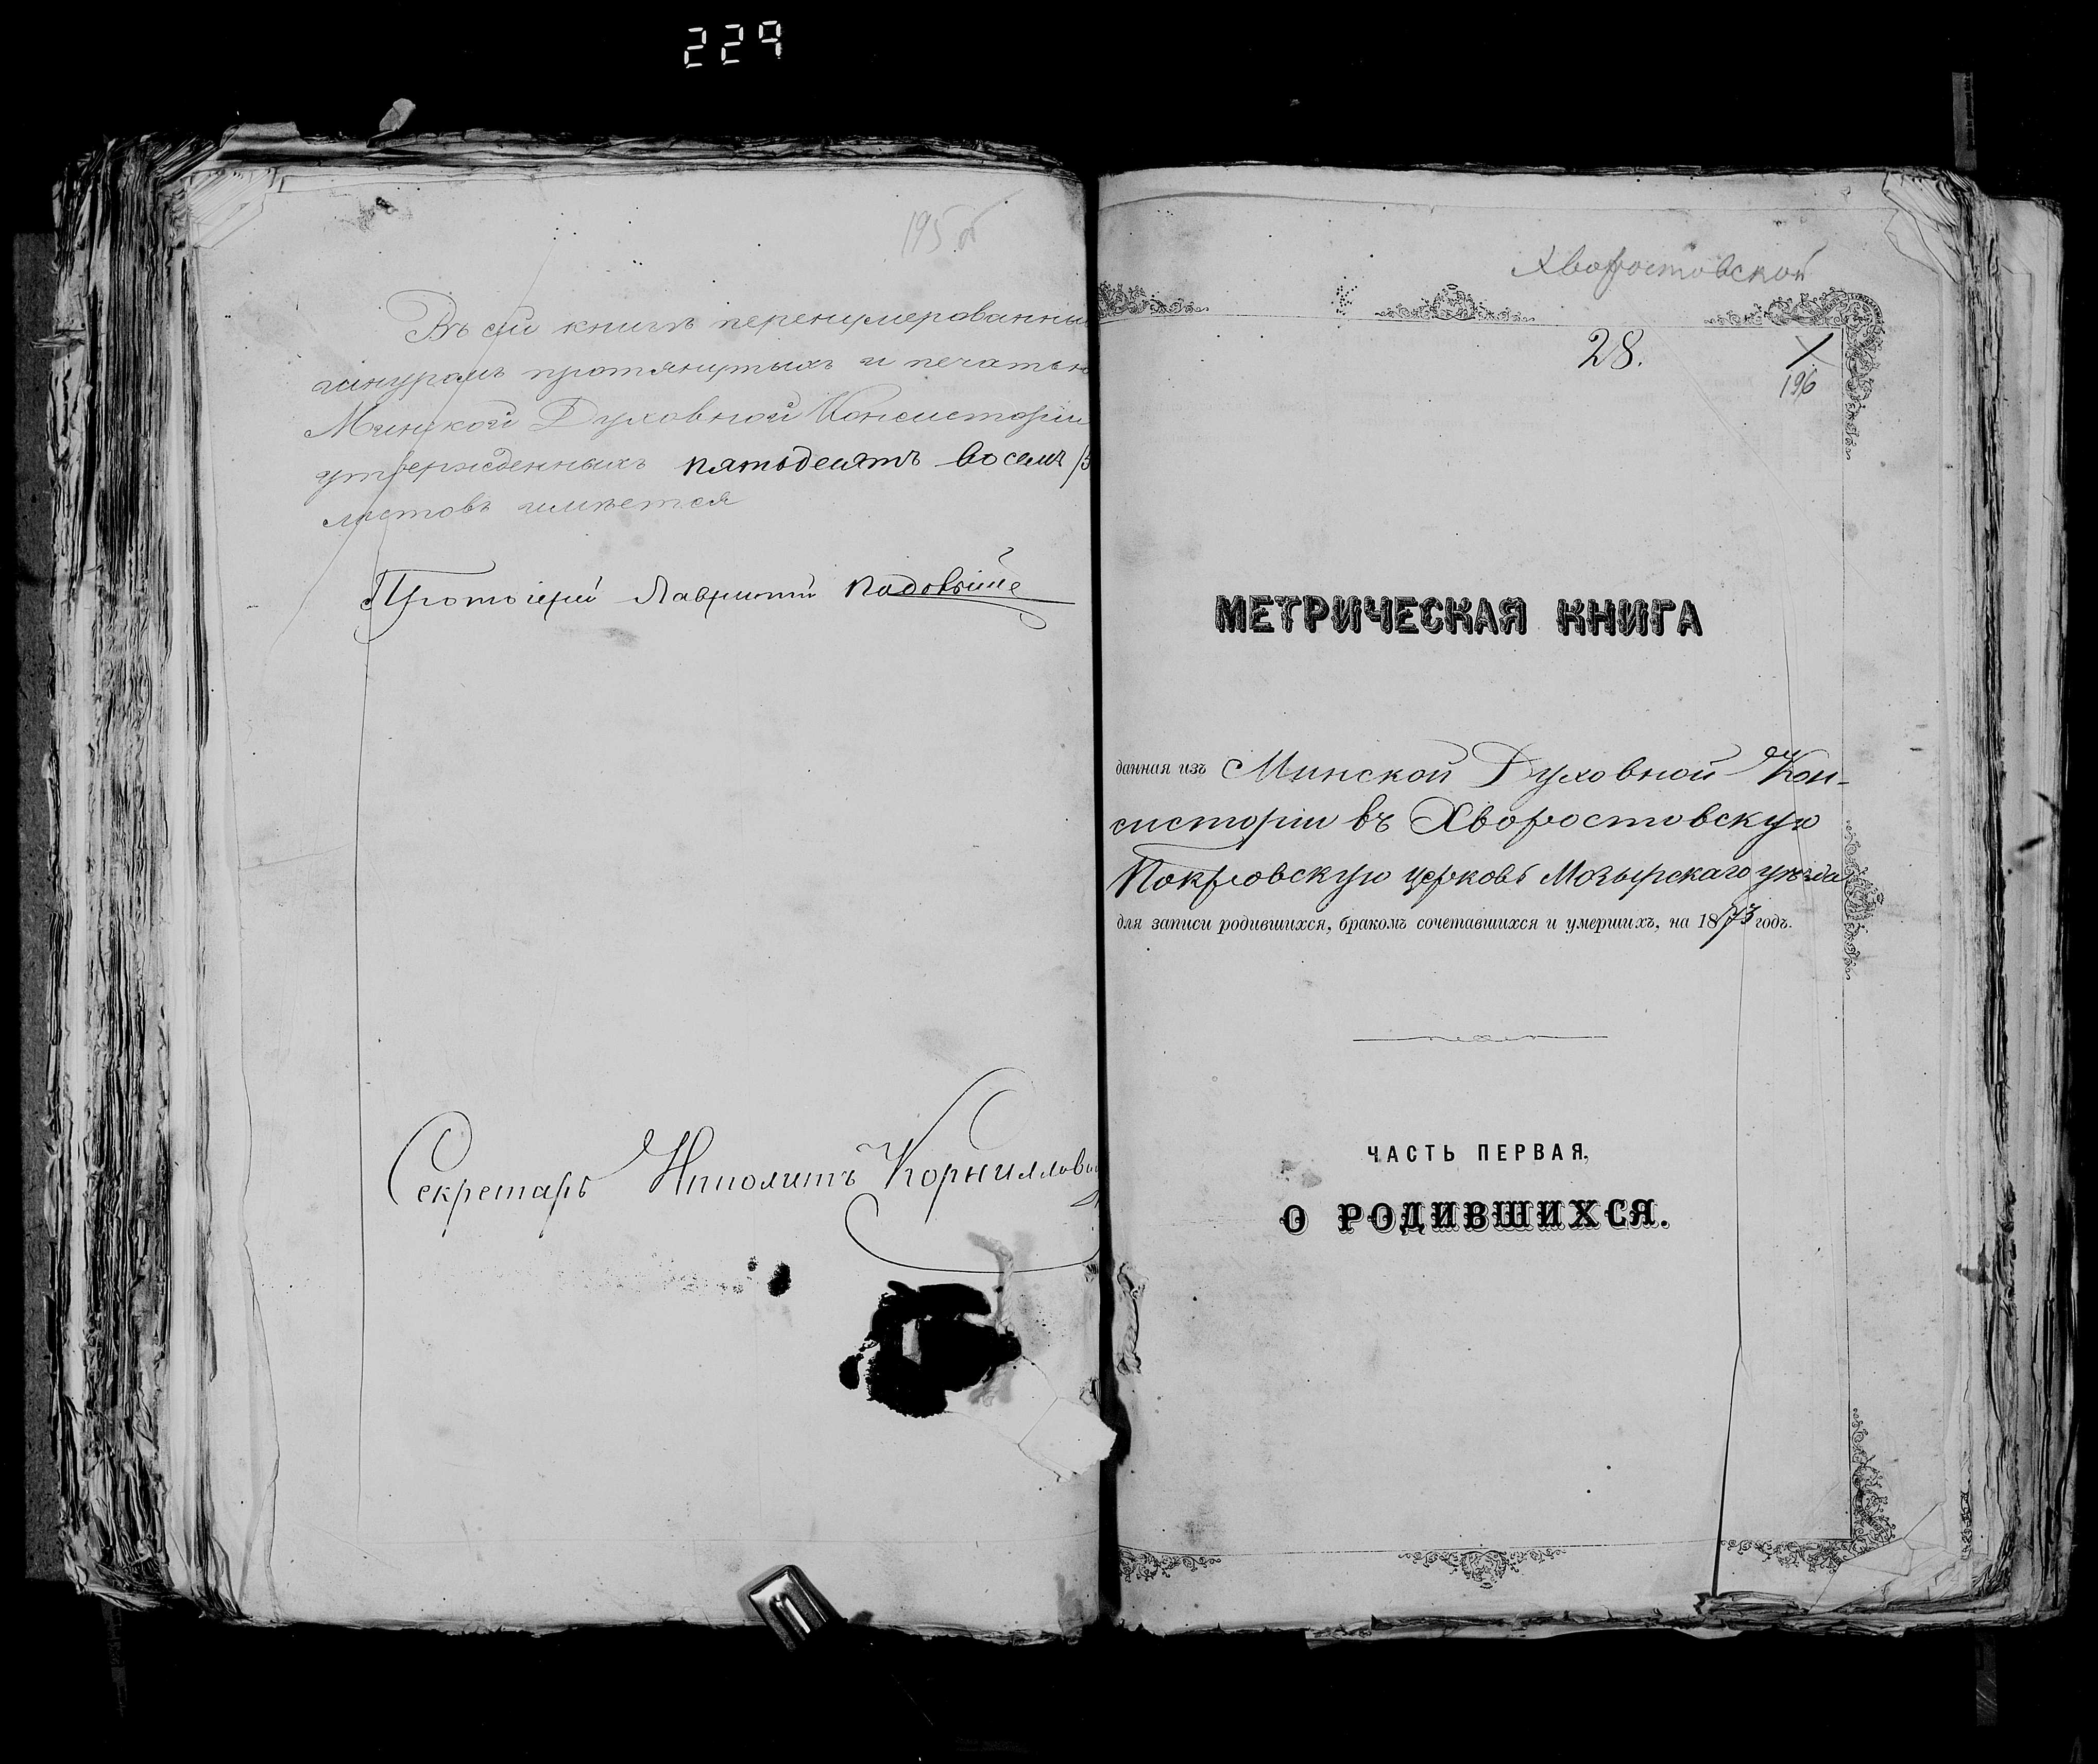 229
195 об
Въ сей книгѣ перенумерованны
шнуромъ протянутыхъ и печатью
Минской Духовной Консисторіи
утвержденныхъ пятьдесятъ восемь /5
листовъ имѣется
Протоіерей Лаврентій
Секретарь Ипполитъ Корнилов
Хворостовской
28.
1
196
МЕТРИЧЕСКАЯ КНИГА
данная изъ Минской Духовной Кон-
систоріи въ Хворостовскую
Покровскую церковь Мозырскаго уѣзда
для записи родившихся, бракомъ сочетавшихся и умершихъ, на 1873 годъ.
ЧАСТЬ ПЕРВАЯ,
О РОДИВШИХСЯ.